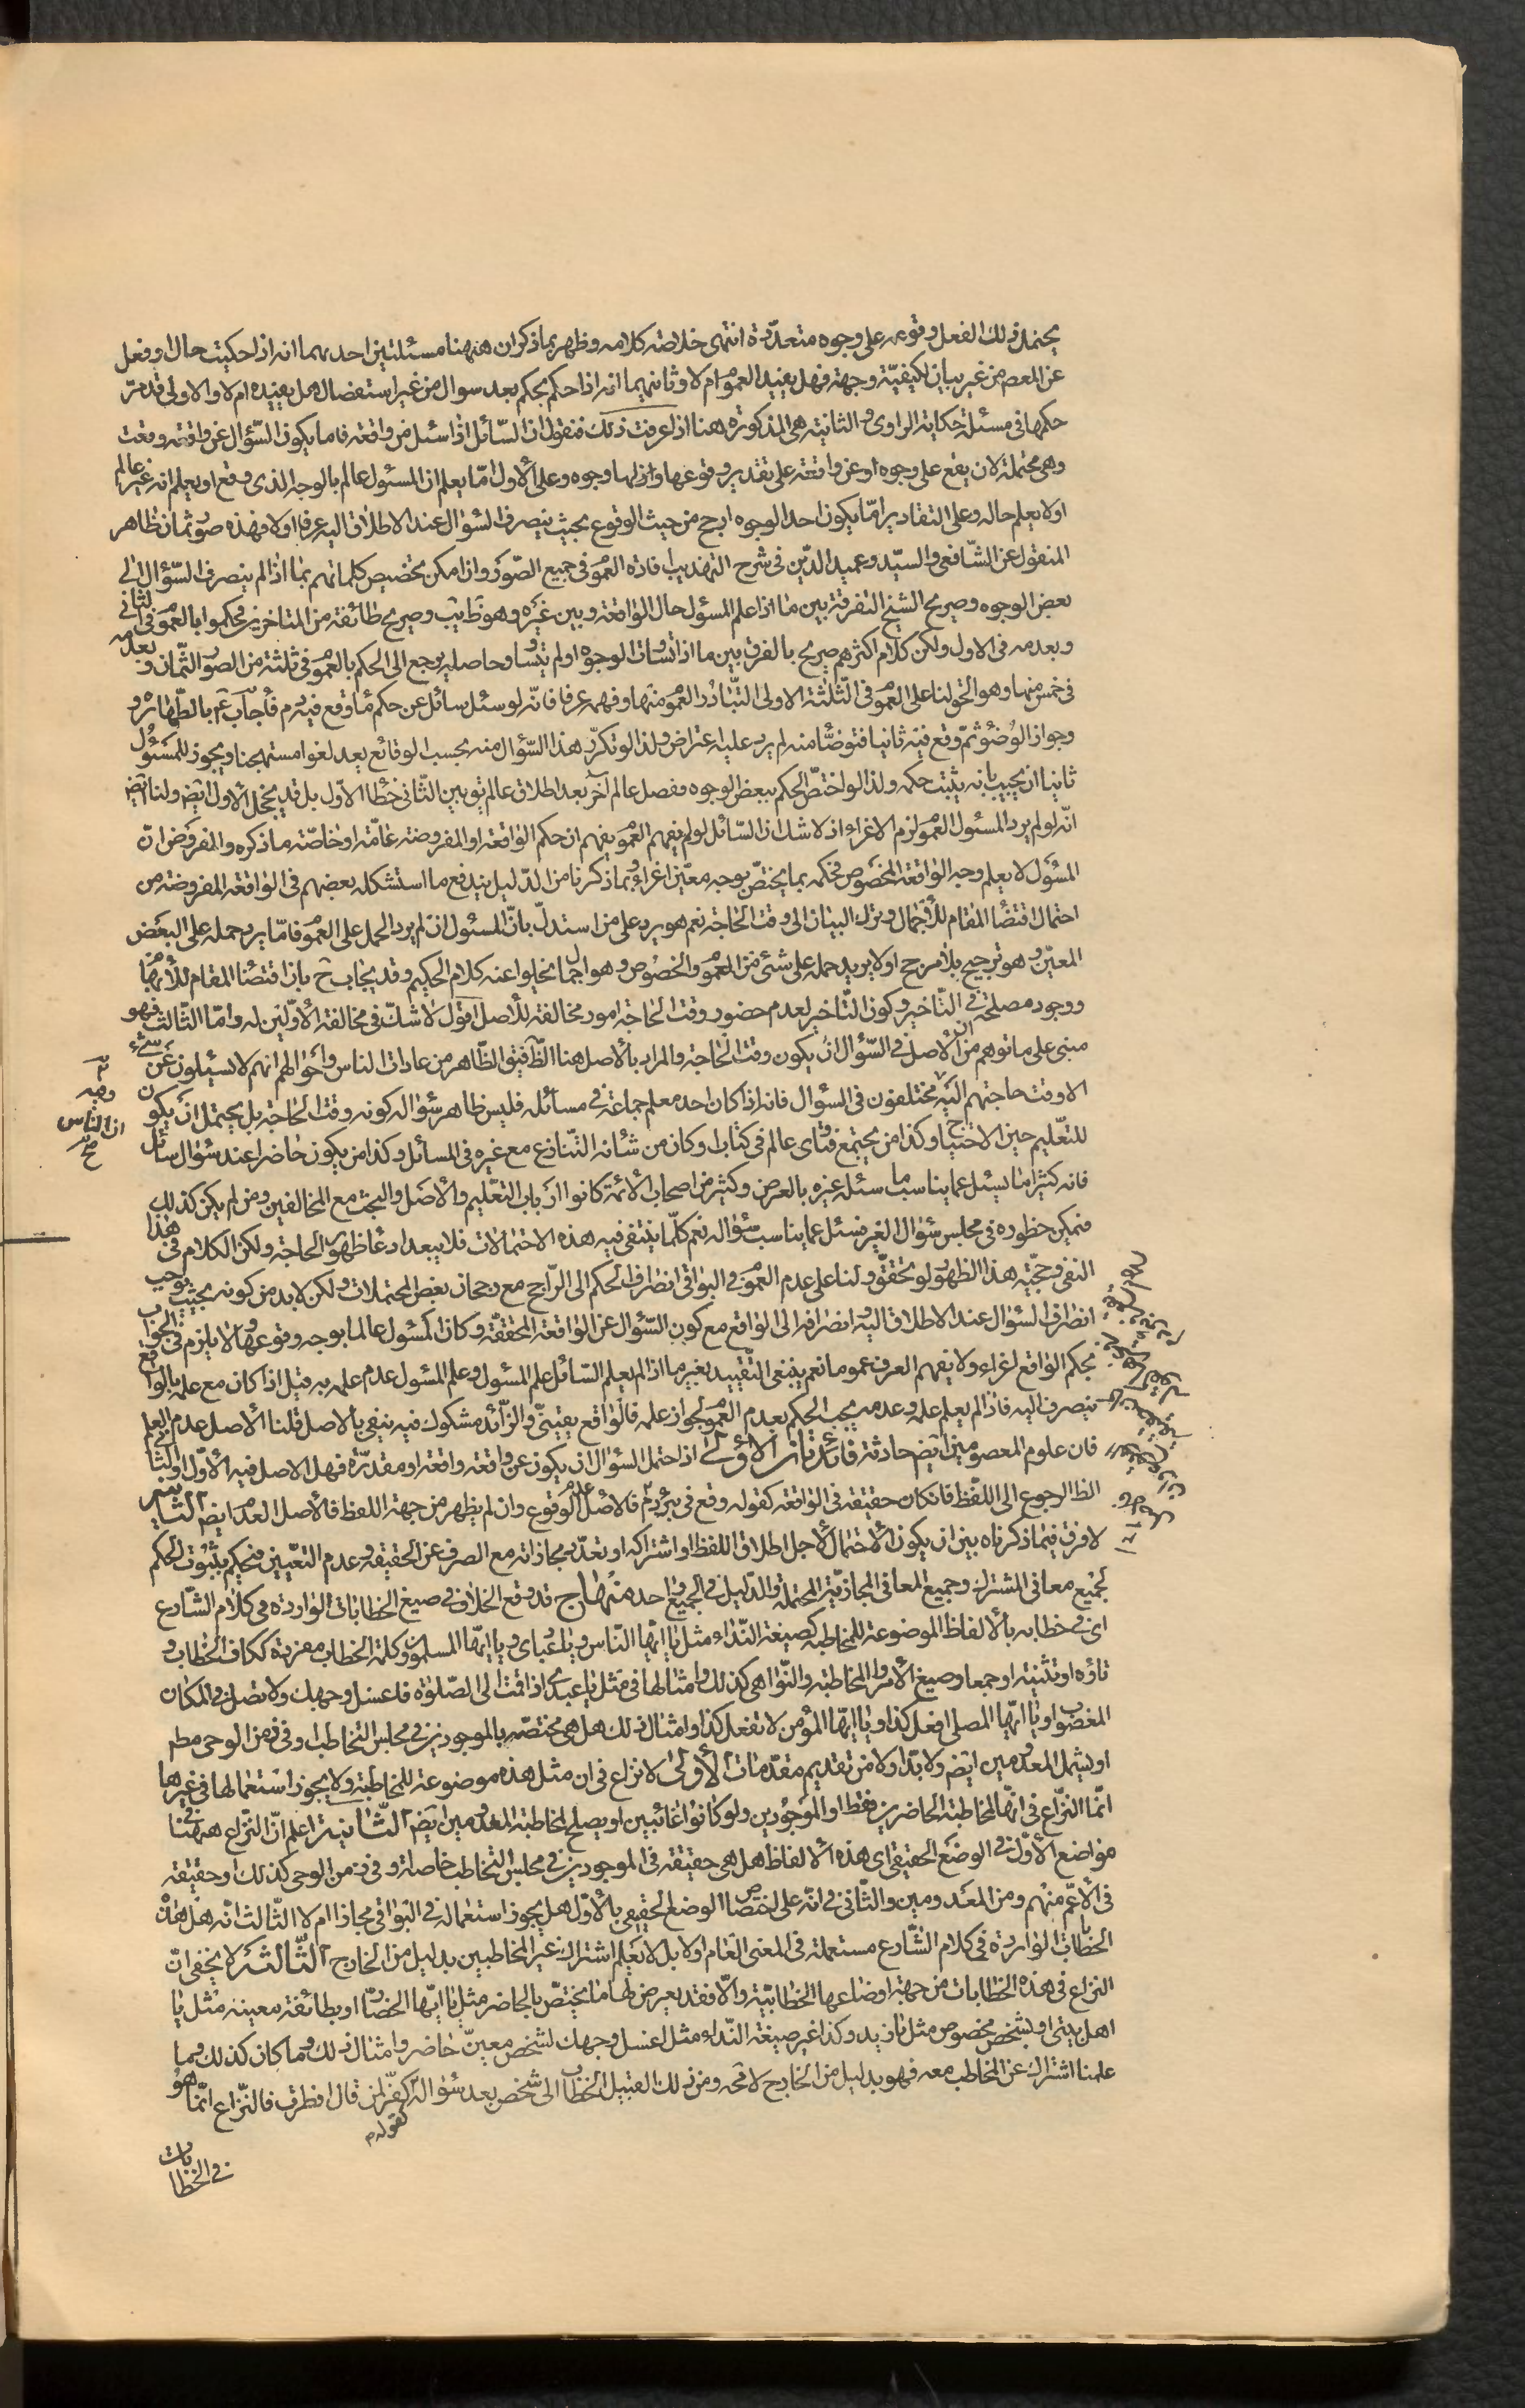 يحتمل ذلك الفعل وقوعه على وجوه متعدّدة انتهى خلاصة كلامه وظهر بما ذكر ان ههنا مسئلتين احديهما انه اذا حكيت حال او فعل
عن المعصم من غير بيان لكيفيّة وجهة فهل يفيد العموم ام لا وثانيهما انه اذا حكم بحكم بعد سوال من غير استفصال هل يفيده ام لا والاولى قد مرّ
حكمها فى مسئلة حكاية الراوى والثانية هى المذكورة هنا اذا عرفت ذلك فنقول ان السّائل اذا سئل عن واقعة فاما يكون السّؤال عن واقعة وقعت
وهى محتملة لان يقع على وجوه او عن واقعة على تقدير وقوعها ولها وجوه وعلى الأول امّا يعلم ان المسئول عالم بالوجه الذى وقع او يعلم انه غير عالم
اولا يعلم حاله وعلى التقادير امّا يكون احد الوجوه ارجح من حيث الوقوع بحيث ينصرف السّؤال عند الاطلاق اليه عرفا اولا فهذه صور ثمان ظاهر
المنقول عن الشّافعى والسيّد وعميد الدّين فى شرح التهذيب افادة العموم فى جميع الصّور وان امكن تخصيص كلماتهم بما اذا لم ينصرف السّؤال الى
بعض الوجوه وصريح الشيخ التفرقة بين ما اذا علم المسئول حال الواقعة وبين غيره وهو ظ يب وصريح طائفة من المتاخرين فحكموا بالعموم فى الثانى
وبعدمه فى الاول ولكن كلام اكثرهم صريح بالفرق بين ما اذا تساوت الوجوه او لم يتساو وحاصله يرجع الى الحكم بالعموم فى ثلثة من الصور الثمان وبعدمه
فى خمس منها وهو الحق لنا على العموم فى الثّلثة الاولى التّبادر العموم منها وفهمه عرفا فانّه لو سئل سائل عن حكم ماء وقع فيه دم فأجاب ع بالطّهارة و
وجواز الوضوء ثمّ وقع فيه ثانيا فتوضّأ منه لم يرد عليه اعتراض ولذا لو تكرّر هذا السّؤال منه بحسب الوقائع يعد لغوا مستهجنا ويجوز للمسئول
ثانيا ان يجيب بانه يثبت حكمه ولذا لو اختصّ الحكم ببعض الوجوه وفصل عالم آخر بعد اطلاق عالم توهين الثّانى خطأ الأوّل بل قد يخجل الأول ايض ولنا ايض
انّه لو لم يرد المسئول العموم لزم الاغراء اذ لا شك ان السّائل لو لم يفهم العموم يفهم ان حكم الواقعة او المفروضة عامّة او خاصّة ما ذكره والمفروض انّ
المسئول لا يعلم وجه الواقعة المخصوص فحكمه بما يختصّ بوجه معيّن اغراء وبما ذكرنا من الدّليل يندفع ما استشكله بعضهم فى الواقعة المفروضة من
احتمال اقتضاء المقام للأجمال وترك البيان الى وقت الحاجة نعم هو يرد على من استدلّ بانّ المسئول ان لم يرد الحمل على العموم فامّا يرد حمله على البعض
المعيّن وهو ترجيح بلا مرجح او لا يريد حمله على شئ من العموم والخصوص وهو اجمال يخلوا عنه كلام الحكيم وقد يجاب ح بان اقتضاء المقام للأبهام
ووجود مصلحة فى التّاخير وكون التّاخير لعدم حضور وقت الحاجة امور مخالفة للأصل اقول لا شكّ فى مخالفة الأوّلين له وامّا الثّالث فهو
مبنى على ما توهم من ان الأصل فى السّؤال ان يكون وقت الحاجة والمراد بالأصل هنا الظّ فيق الظّاهر من عادات الناس واحوالهم انهم لا يسئلون عن شئ
الا وقت حاجتهم اليه مختلفون فى السؤال فانه اذا كان احد معلم جماعة فى مسائله فليس ظاهر سؤاله كونه وقت الحاجة بل يحتمل ان يكون
للتعّليم حين الاحتياج وكذا من يجتمع فتاوى عالم فى كتاب او كان من شأنه التّنازع مع غيره فى المسائل وكذا من يكون حاضرا عند سؤال سائل
فانه كثيرا ما يسئل عما يناسب ما سئله غيره بالعرض وكثير من اصحاب الأئمّة كانوا ارباب التعّليم والأصل والبحث مع المخالفين ومن لم يكن كذلك
فيمكن حظوره فى مجلس سؤال الغير فسئل عما يناسب سؤاله نعم كلّما ينتفى فيه هذه الاحتمالات فلا يبعد ادعاء ظهور الحاجة ولكن الكلام فى هذا
النفى وحجّيّة هذا الظهور لو تحقّق ولنا على عدم العموم فى البواقى انصراف الحكم الى الرّاجح مع رجحان بعض المحتملات ولكن لابد من كونه بحيث يوجب
انصراف السّؤال عند الاطلاق اليه انصرافه الى الواقع مع كون السّؤال عن الواقعة المحققة وكان المسئول عالما بوجه وقوعها ولا يلزم فى الجواب
بحكم الواقع اغراء ولا يفهم العرف عموما نعم ينبغى التّقييد بغير ما اذا لم يعلم السّائل علم المسئول وعلم المسئول عدم علمه به قيل اذا كان مع علمه بالواقع
ينصرف اليه فاذا لم يعلم علمه وعدمه يجب الحكم بعدم العموم لجواز علمه فالواقع يقينىّ والزّائد مشكوك فيه ينفى بالاصل قلنا الأصل عدم العلم
فان علوم المعصومين ايض حادثة فائدتان الأولى اذا احتمل السّؤال ان يكون عن واقعة واقعة او مقدّرة فهل الاصل فيه الأوّل او الثّانى
الظ الرجوع الى اللّفظ فان كان حقيقة فى الواقعة كقوله وقع فى بئر دم فالاصل الوقوع وان لم يظهر من جهة اللفظ فالأصل العدم ايض الثّانية
لا فرق فيما ذكرناه بين ان يكون الأحتمال لأجل اطلاق اللفظ او اشتراكه او تعدّد مجازاته مع الصرف عن الحقيقة وعدم التعّيين فيحكم بثبوت الحكم
لجميع معانى المشترك وجميع المعانى المجازيّة المحتملة والدّليل فى الجميع واحد منهاج قد وقع الخلاف فى صيغ الخطابات الواردة فى كلام الشّارع
اى فى خطابه بالألفاظ الموضوعة للمخاطبة كصيغة النّداء مثل يا ايّها النّاس ويا عبادى ويا ايّها المسلمون وكلمة الخطاب مفردة ككاف الخطاب و
تاؤه او تثنية او جمعا وصيغ الأمر والمخاطبة والنّواهى كذلك وامثالها فى مثل يا عبدى اذا قمت الى الصّلوة فاغسل وجهك ولا تصلّ فى المكان
المغضوب او يا ايّها المصلى افعل كذا او يا ايّها المؤمن لا تفعل كذا وامثال ذلك هل هى مختصّة بالموجودين فى مجلس التخاطب او فى زمن الوحى مطم
او يشمل المعدومين ايض ولا بدّ اولا من تقديم مقدّمات الأولى لا نزاع فى ان مثل هذه موضوعة للمخاطبة ولا يجوز استعمالها فى غيرها
انّما النّزاع فى انّها لمخاطبة الحاضرين فقط او الموجودين ولو كانوا غائبين او يصلح لمخاطبة المعدومين ايض الثّانية اعلم انّ النّزاع ههنا فى
مواضع الأوّل فى الوضع الحقيقى اى هذه الألفاظ هل هى حقيقة فى الموجودين فى مجلس التخاطب خاصة او فى زمن الوحى كذلك او حقيقة
فى الأعمّ منهم ومن المعدومين والثّانى فى انّه على اختصاص الوضع الحقيقى بالأوّل هل يجوز استعماله فى البواقى مجازا ام لا الثّالث انّه هل هذه
الخطابات الواردة فى كلام الشّارع مستعملة فى المعنى العام اولا بل لا يعلم اشتراك غير المخاطبين بدليل من الخارج الثّالثة لا يخفى انّ
النزاع فى هذه الخطابات من جهة اوضاعها الخطابيّة والّا فقد يعرض لها ما يختصّ بالحاضر مثل يا ايّها الحضّار او بطائفة معينة مثل يا
اهل بيتى او بشخص مخصوص مثل يا زيد وكذا غير صيغة النّداء مثل اغسل وجهك لشخص معيّن حاضر وامثال ذلك وما كان كذلك وممّا
علمنا اشتراك غير المخاطب معه فهو بدليل من الخارج لا مح ومن ذلك القبيل الخطاب الى شخص بعد سؤاله كقوله كفّر لمن قال افطرت فالنّزاع انّما هو
فى الخطابات
وفيه
ان الناس
صح